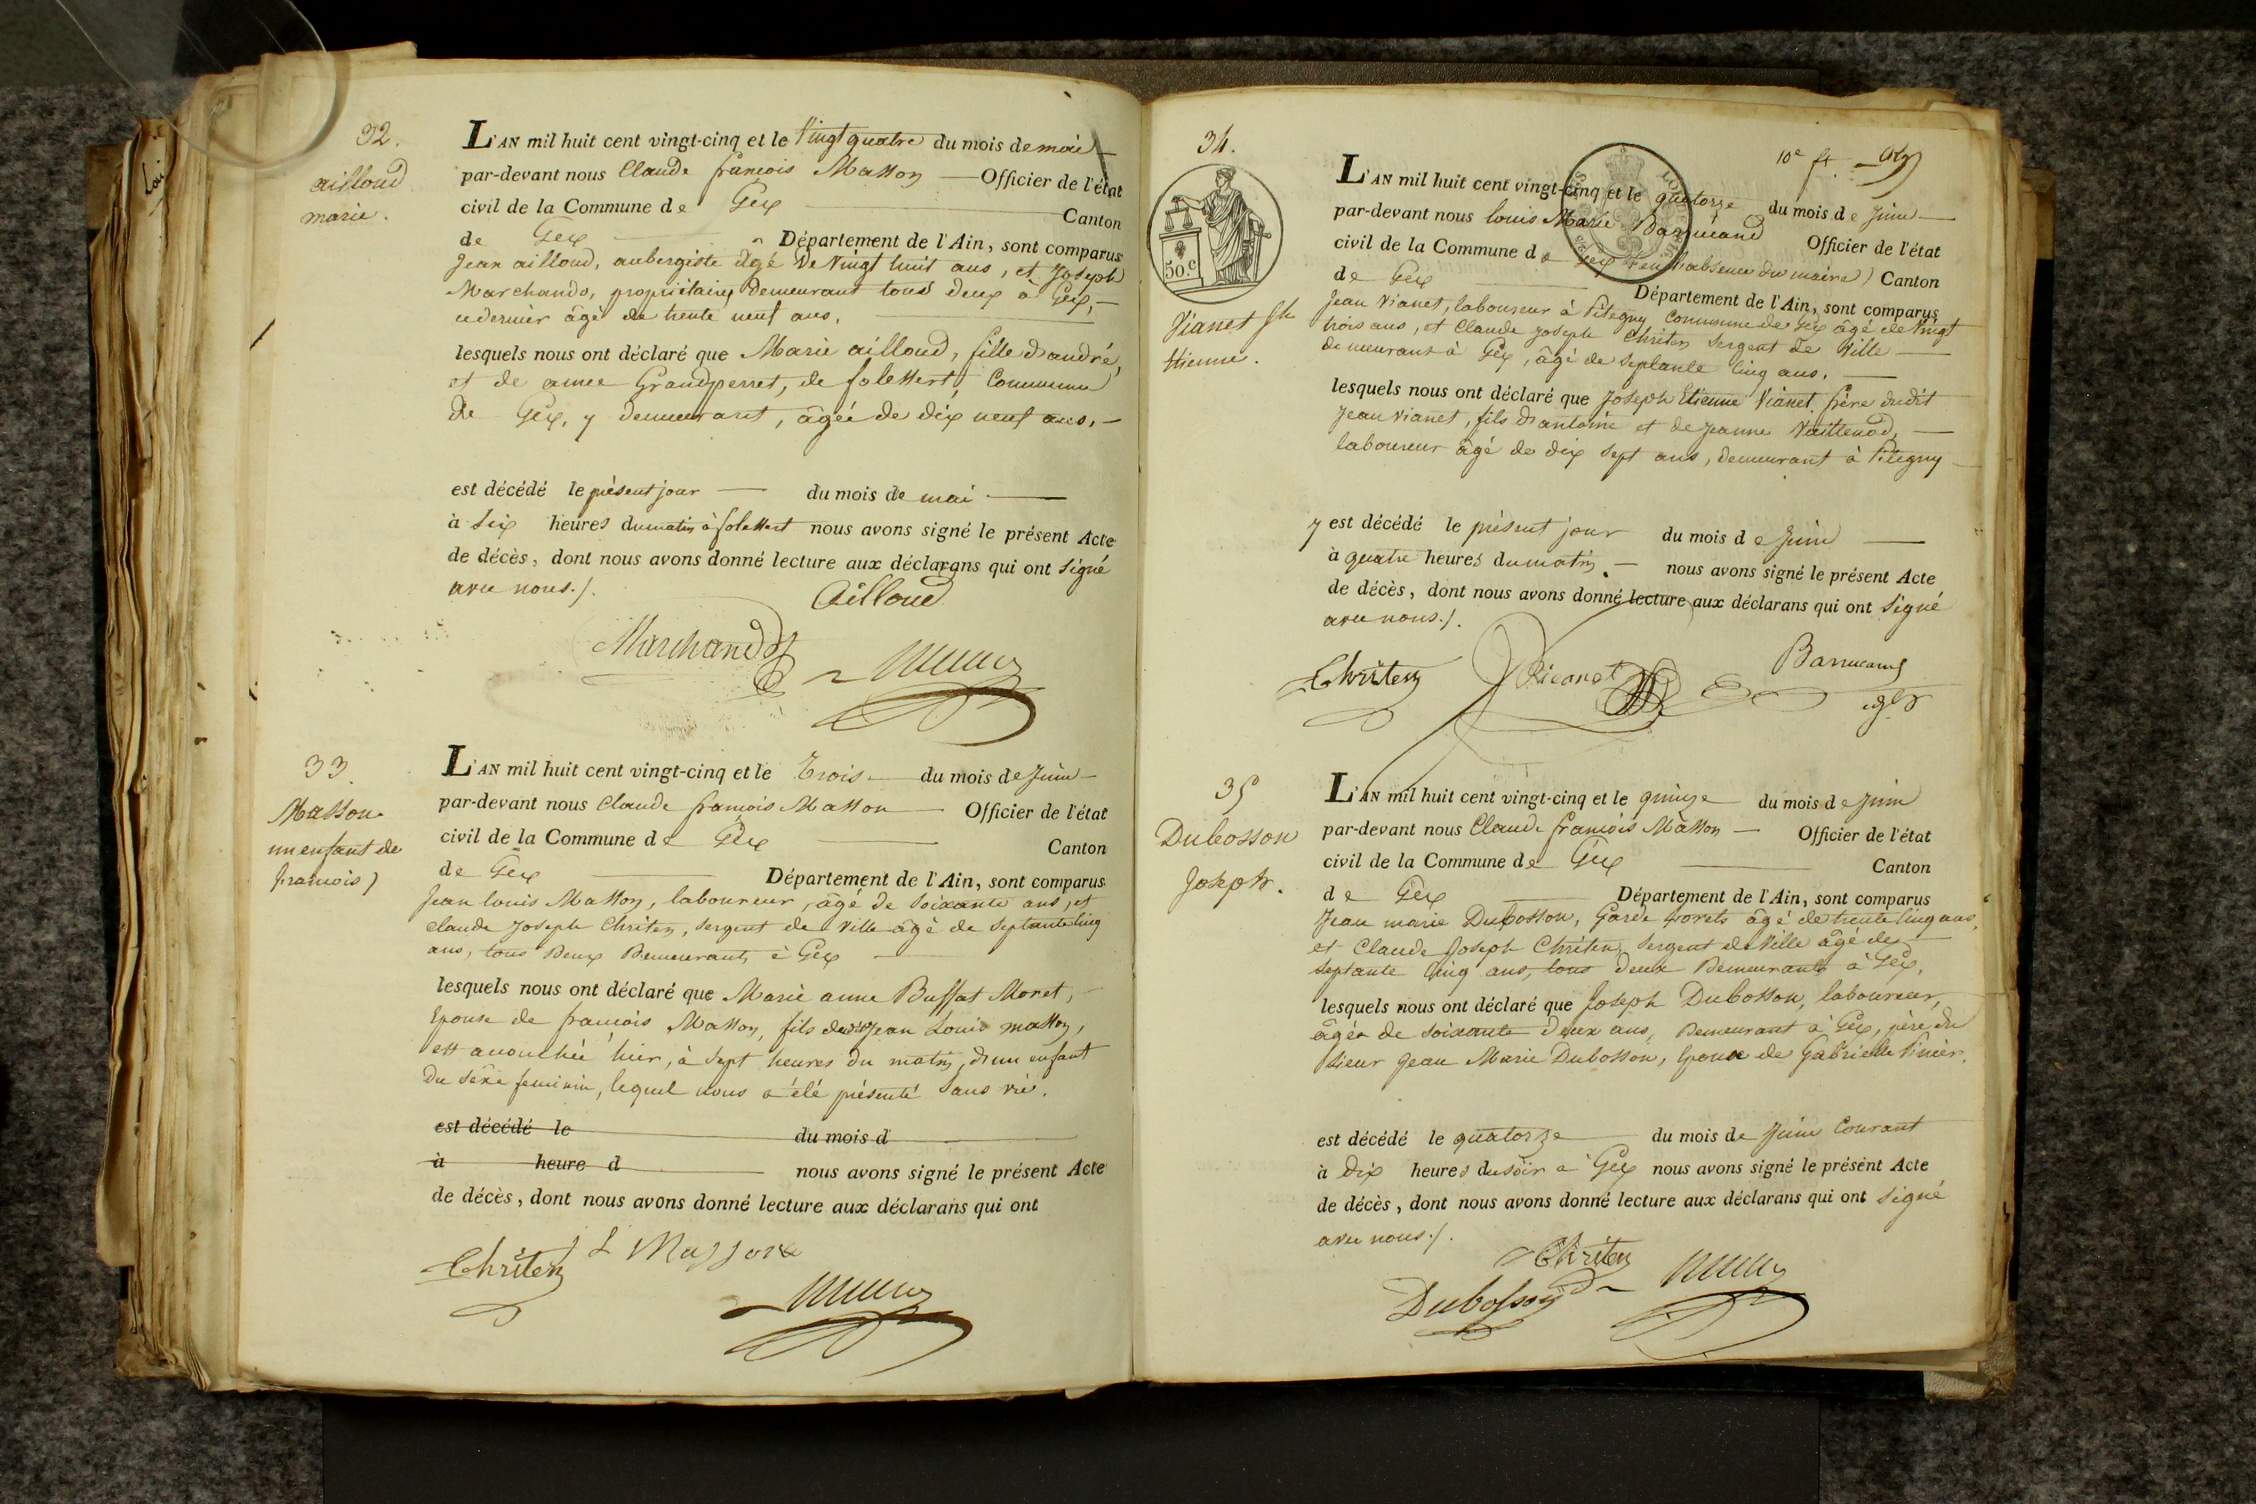 32.
ailloud
marie.
L'AN mil huit cent vingt-cinq et le Vingt quatre du mois de mai
par-devant nous Claude françois Masson Officier de l'état
civil de la Commune de Gex Canton
de Gex Département de l'Ain, sont comparus
Jean ailloud, aubergiste âgé de Vingt huit ans, et Joseph
Marchands, propriétaire demeurant tous deux à Gex,
ce dernier âgé de trente neuf ans.
lesquels nous ont déclaré que Marie ailloud, fille d'andré,
et de Grandperret, de Commune
de Gex, y demeurant, âgée de dix neuf ans.
est décédé le présent jour du mois de mai
à Six heures du matin à nous avons signé le présent Acte
de décès, dont nous avons donné lecture aux déclarans qui ont signé
avec nous./.
Ailloud
Marchand
33.
Masson
un enfant de
françois)
L'AN mil huit cent vingt-cinq et le Trois du mois de Juin
par-devant nous Claude françois Masson Officier de l'état
civil de la Commune de Gex Canton
de Gex Département de l'Ain, sont comparus
Jean louis Masson, laboureur, âgé de soixante ans, et
claude Joseph Christen, sergent de ville âgé de septante cinq
ans, tous Deux Demeurants à Gex
lesquels nous ont déclaré que Marie anne Buffat Moret,
Epouse de françois Masson, fils dudit Jean Louis masson,
est accouchée hier, à sept heures du matin, d'un enfant
Du sexe feminin, lequel nous a été présenté sans vie.
est décédé le du mois d
à heure d nous avons signé le présent Acte
de décès, dont nous avons donné lecture aux déclarans qui ont
Christen J L Masson
34.
50.c
Vianet Jh
Etienne.
10e ft
L'AN mil huit cent vingt-cinq et le quatorze du mois de Juin
par-devant nous louis Marie Officier de l'état
civil de la Commune de Gex (en l'absence du maire) Canton
de Gex Département de l'Ain, sont comparus
Jean Vianet, laboureur à Pitegny Commune de Gex âgé de Vingt
trois ans, et Claude Joseph Christen Sergent de Ville
demeurant à Gex, âgé de septante cinq ans.
lesquels nous ont déclaré que Joseph Etienne Vianet, frère dudit
Jean Vianet, fils d'antoine et de Jeanne
laboureur âgé de dix sept ans, demeurant à Pitegny
y est décédé le présent jour du mois de Juin
à quatre heures du matin. nous avons signé le présent Acte
de décès, dont nous avons donné lecture aux déclarans qui ont signé
avec nous./.
Christen
35
Dubosson
Joseph.
L'AN mil huit cent vingt-cinq et le quinze du mois de Juin
par-devant nous Claude françois Masson Officier de l'état
civil de la Commune de Gex Canton
de Gex Département de l'Ain, sont comparus
Jean marie Dubosson, Garde forets âgé de trente cinq ans,
et Claude Joseph Christen, Sergent de Ville âgé de
septante cinq ans, tous deux Demeurants à Gex,
lesquels nous ont déclaré que Joseph Dubosson, laboureur,
âgé de soixante deux ans, Demeurant à Gex, père du
sieur Jean Marie Dubosson, Epoux de Gabrielle
est décédé le quatorze du mois de Juin Courant
à Dix heures du soir à Gex nous avons signé le présent Acte
de décès, dont nous avons donné lecture aux déclarans qui ont signé
avec nous./.
Christen
Dubosson